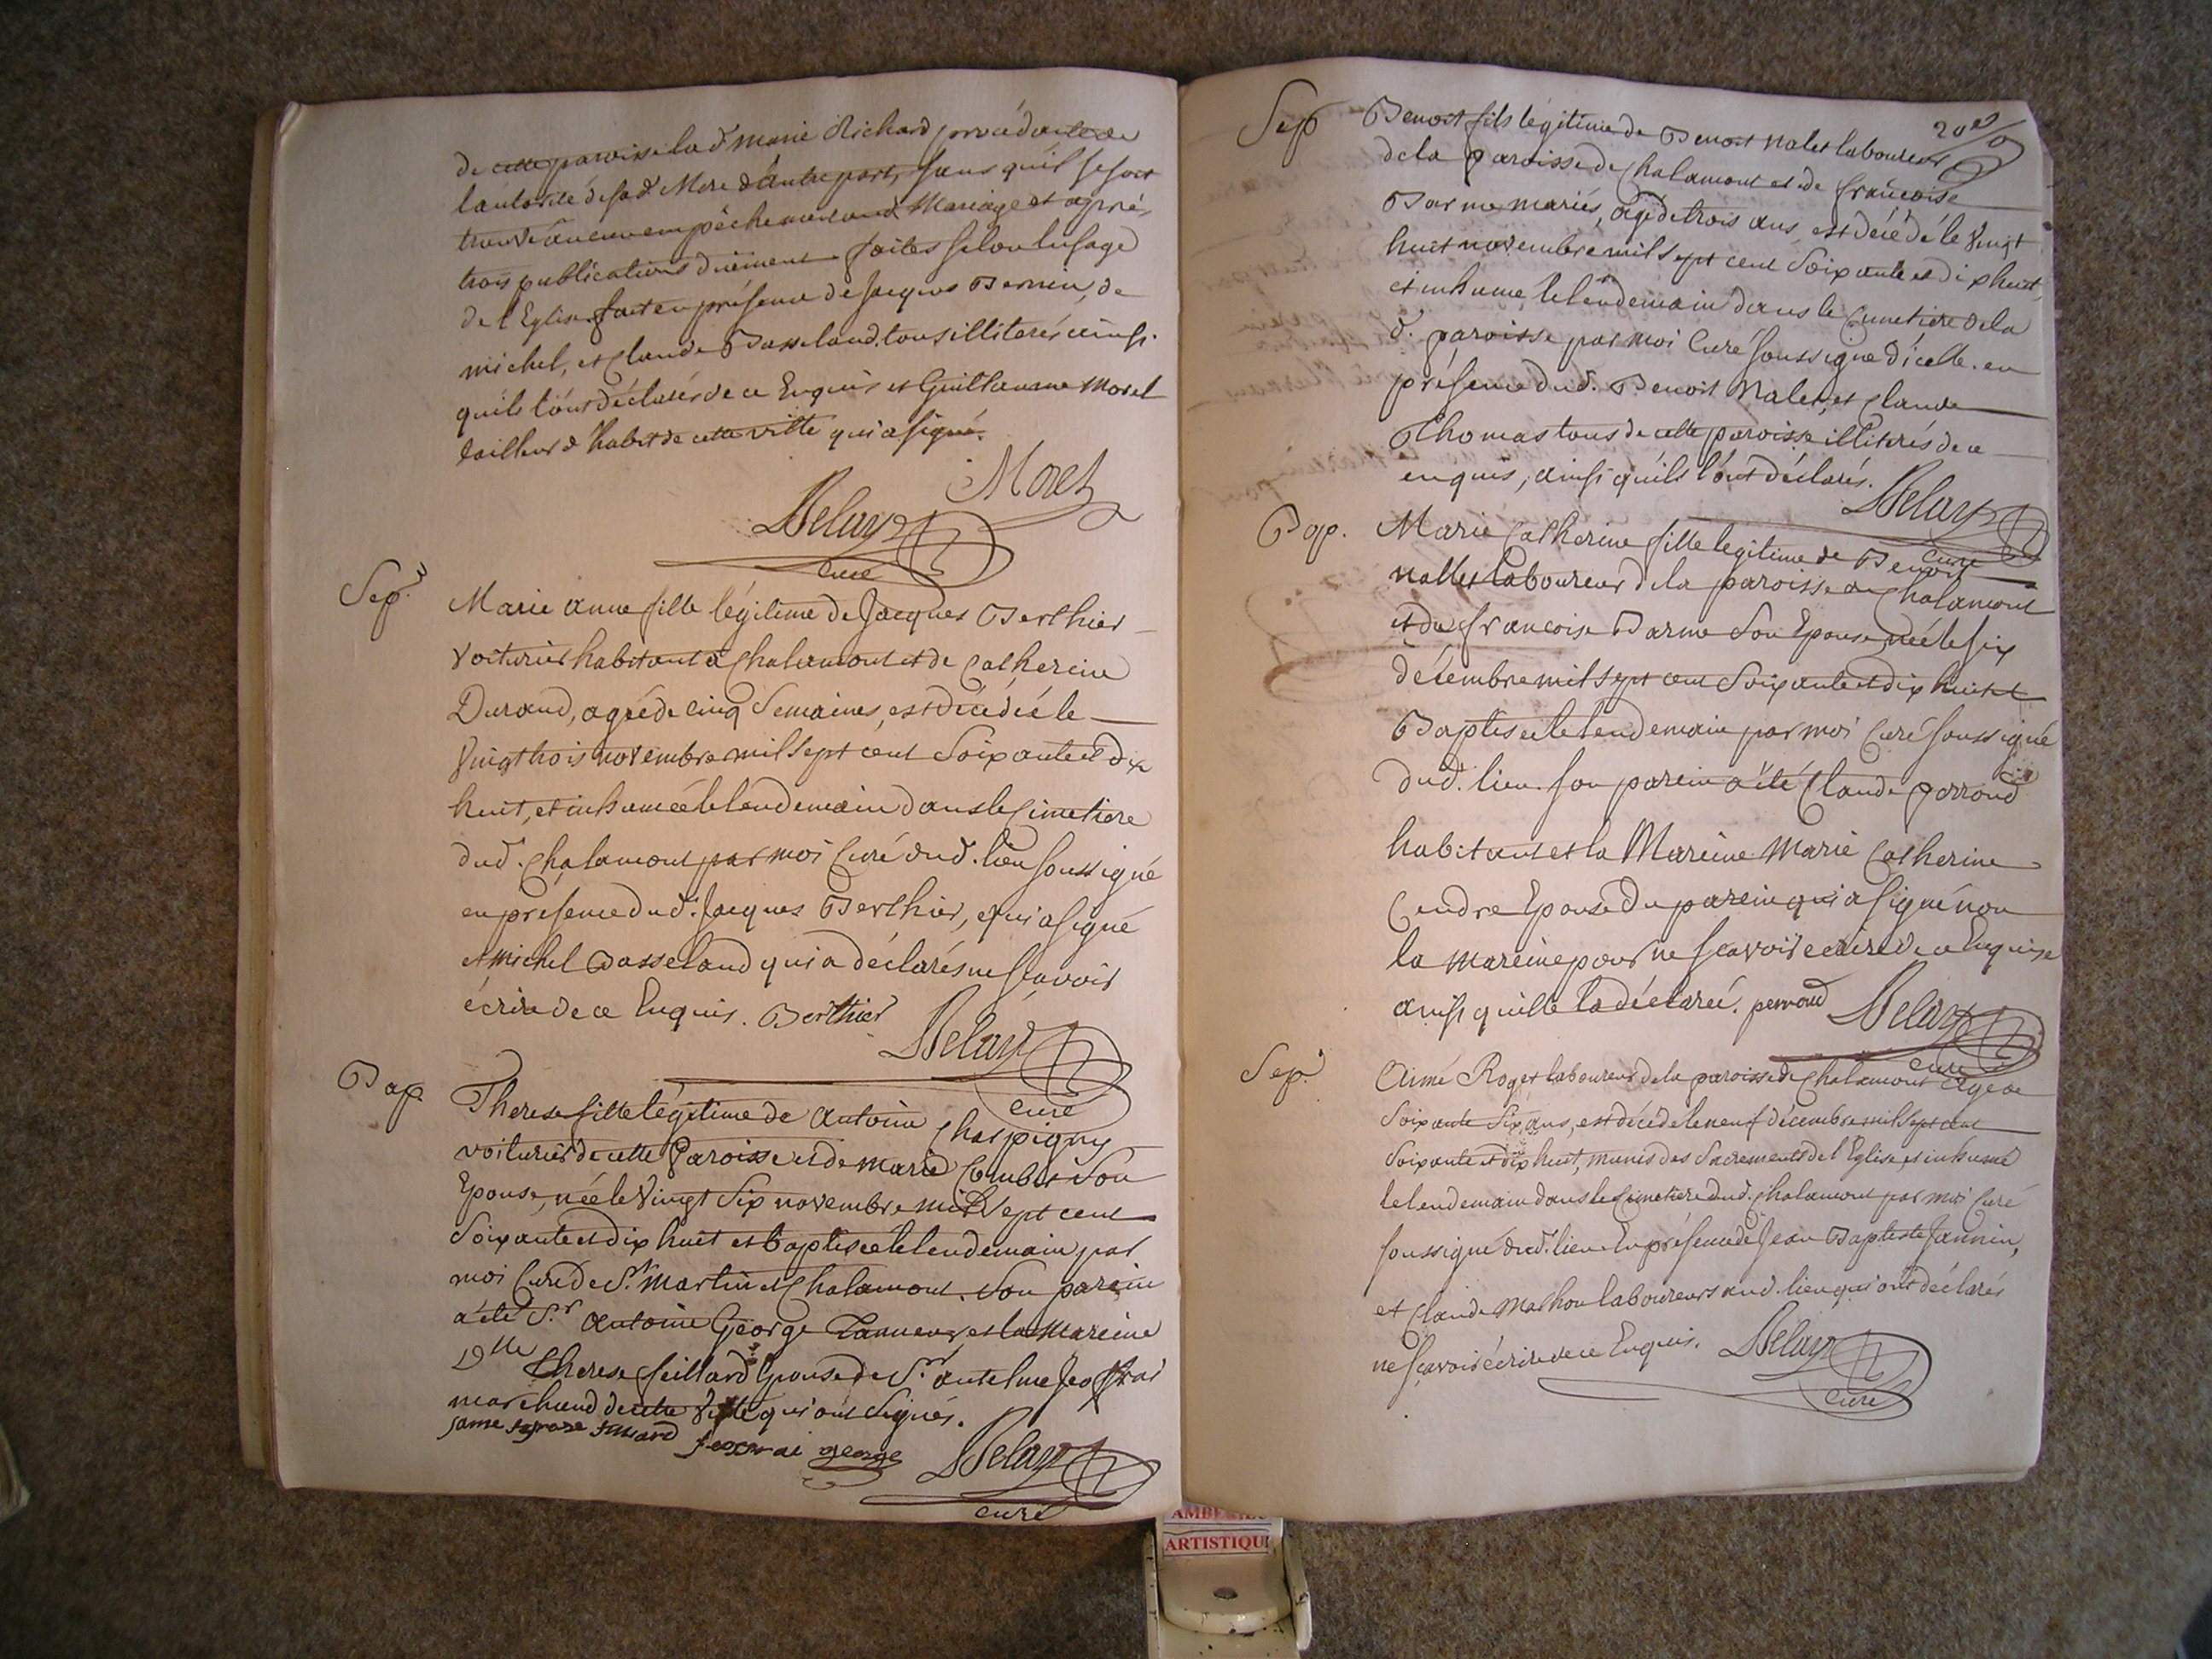 de cette paroisse la d. marie Richard procédante de
l'autorité de sad. Mere d'autre part, sans qu'il se soit
trouvé aucun empêchement aud. Mariage et après
trois publications duëment faites selon l'usage
de l'Eglise. fait en présence de Jacques Bernin, de
michel, et Claude Basseland. tous illiterés ainsi
qu'ils l'ont déclarés de ce Enquis et Guillaume Morel
tailleur d'habit de cette ville qui a signé.
Morel
Delay
curé
Sep.
Marie anne fille légitime de Jacques Berthier
Voiturier habitant à Chalamont et de Catherine
Durand, agée de cinq Semaines, est décédée le
Vingt trois novembre mil sept cent Soixante et dix
huit, et inhumée le lendemain dans le Cimetiere
dud. Chalamont par moi Curé dud. lieu soussigné
en presence dud. Jacques Berthier, qui a signé
et michel Basseland qui a déclarés ne scavoir
écrire de ce Enquis. Berthier
Delay
curé
Bap.
Therese fille légitime de Antoine Charpigny
voiturier de cette Paroisse et de marie Combet Son
Epouse, née le Vingt Six novembre mil Sept cent
Soixante et dix huit et baptisée le lendemain par
moi Curé de St. Martin et Chalamont. Son parein
a été Sr. Antoine George Tanneur, et la Mareine
Dlle Therese feillard Epouse de Sr. antelme Jeoffrai
marchand de cette Ville qui ont signés.
feoffrai george
Delay
curé
Sep
Benoit fils légitime de Benoit Nalet laboureur
de la paroisse de Chalamont et de francoise
Barme mariés, agé de trois ans, est décédé le Vingt
huit novembre mil sept cent Soixante et dix huit,
et inhumé le lendemain dans le Cimetiere de la
d. paroisse par moi Curé soussigné d'icelle. en
présence dud. Benoit Nalet, et Claude
Thomas tous de cette paroisse illiterés de ce
enquis, ainsi qu'ils l'ont déclarés.
Delay
curé
Bap.
Marie Catherine fille legitime de Benoit
nallet Laboureur de la paroisse de Chalamont
et de francoise Barme Son Epouse née le six
décembre mil sept cent Soixante et dix huit et
Baptisée le lendemain par moi Curé soussigné
dud. lieu. son parein a été Claude perroud
habitant et la Mareine Marie Catherine
Cendre Epouse du parein qui a signé non
la mareine pour ne scavoir ecrire de ce Enquise
ainsi qu'elle la déclaréé. perroud
Delay
curé
Sep.
Aimé Roget laboureur de la paroisse de Chalamont agé de
Soixante Six ans, est décédé le neuf décembre mil sept cent
Soixante et dix huit, munis des Sacrements de l'Eglise et inhumé
le lendemain dans le Cimetiere dud. Chalamont par moi Curé
soussigné dud. lieu. En présence de Jean Baptiste Jannin,
et Claude Mathon laboureurs aud. lieu qui ont déclarés
ne scavoir écrire de ce Enquis. Delay
curé
AMBERIEU
ARTISTIQUE